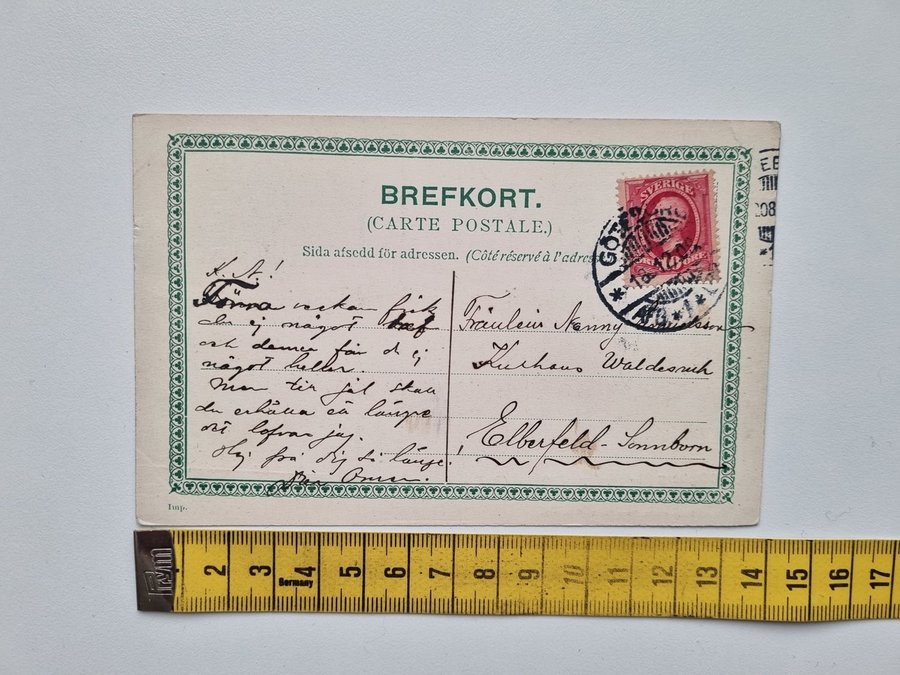 BREFKORT.
(CARTE POSTALE.)
Sida afsedd för adressen. (Côté réservé à l'adres
SVERIGE
GÖTEB
18.12.0
AFG.*1*
EB
08
K. A!
Förra veckan fick
du ej något bref
och denna får du ej
något heller.
Men till jul skall
du erhålla ett långt
det lofvar jag.
Hej från dig så länge.
Fräulein Nanny
Kurhaus Waldesruh
Elberfeld-Sonnborn
Imp.
2 3 4 5 6 7 8 9 10 11 12 13 14 15 16 17
Germany